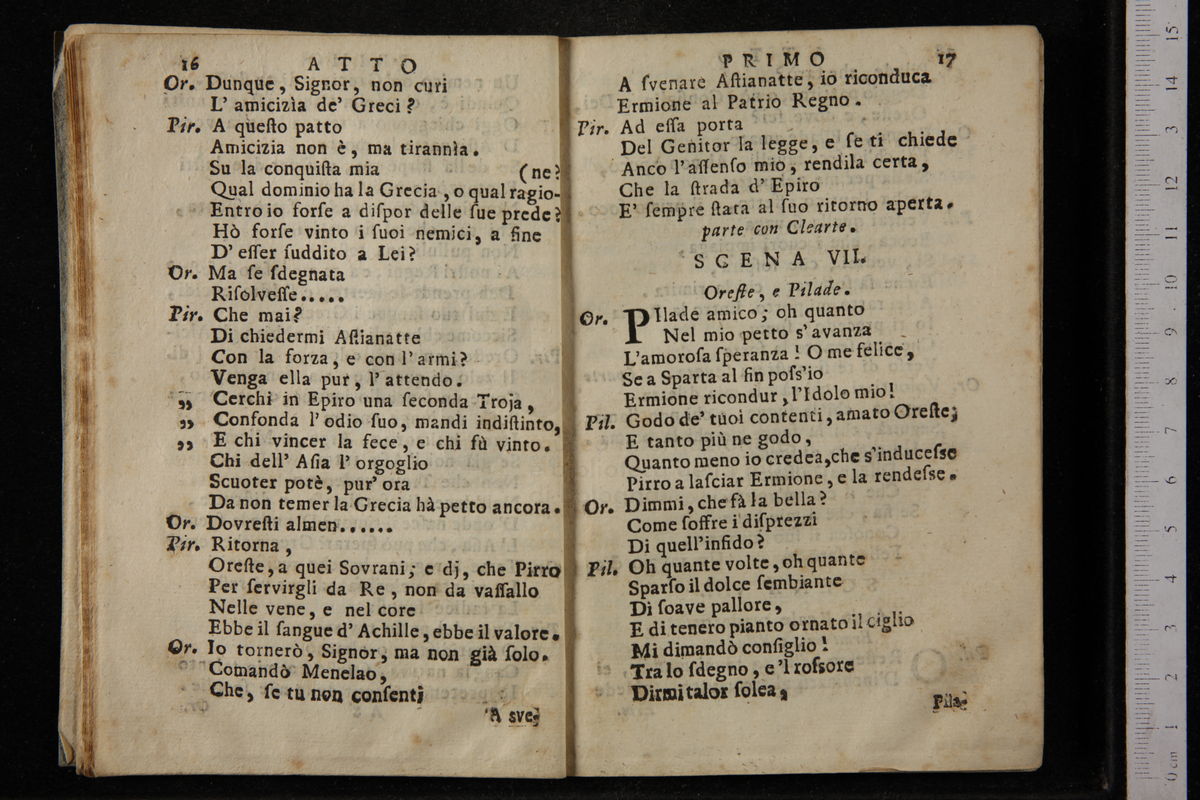 16 ATTO
Or. Dunque, Signor, non curi
L' amicizìa de' Greci?
Pir. A queſto patto
Amicizia non è, ma tirannìa.
Su la conquiſta mia (ne?
Qual dominio ha la Grecia, o qual ragio-
Entro io forſe a diſpor delle ſue prede?
Hò forſe vinto i ſuoi nemici, a fine
D' eſſer ſuddito a Lei?
Or. Ma ſe ſdegnata
Riſolveſſe.....
Pir. Che mai?
Di chiedermi Aſtianatte
Con la forza, e con l'armi?
Venga ella pur, l'attendo.
„ Cerchi in Epiro una ſeconda Troja,
„ Confonda l'odio ſuo, mandi indiſtinto,
„ E chi vincer la fece, e chi fù vinto.
Chi dell' Aſia l'orgoglio
Scuoter potè, pur' ora
Da non temer la Grecia hà petto ancora.
Or. Dovreſti almen......
Pir. Ritorna,
Oreſte, a quei Sovrani; e dj, che Pirro
Per ſervirgli da Re, non da vaſſallo
Nelle vene, e nel core
Ebbe il ſangue d' Achille, ebbe il valore.
Or. Io tornerò, Signor, ma non già ſolo.
Comandò Menelao,
Che, ſe tu non conſenti
A sve-
PRIMO 17
A ſvenare Aſtianatte, io riconduca
Ermione al Patrio Regno.
Pir. Ad eſſa porta
Del Genitor la legge, e ſe ti chiede
Anco l'aſſenſo mio, rendila certa,
Che la ſtrada d' Epiro
E' ſempre ſtata al ſuo ritorno aperta.
parte con Clearte.
SCENA VII.
Oreſte, e Pilade.
Or. PIlade amico; oh quanto
Nel mio petto s'avanza
L'amoroſa ſperanza! O me felice,
Se a Sparta al fin poſs'io
Ermione ricondur, l'Idolo mio!
Pil. Godo de' tuoi contenti, amato Oreſte;
E tanto più ne godo,
Quanto meno io credea, che s'induceſse
Pirro a laſciar Ermione, e la rendeſse.
Or. Dimmi, che fà la bella?
Come ſoffre i diſprezzi
Di quell'infido?
Pil. Oh quante volte, oh quante
Sparſo il dolce ſembiante
Di ſoave pallore,
E di tenero pianto ornato il ciglio
Mi dimandò conſiglio!
Tra lo ſdegno, e 'l roſsore
Dirmi talor ſolea,
Pila-
0 cm 1 2 3 4 5 6 7 8 9 10 11 12 13 14 15